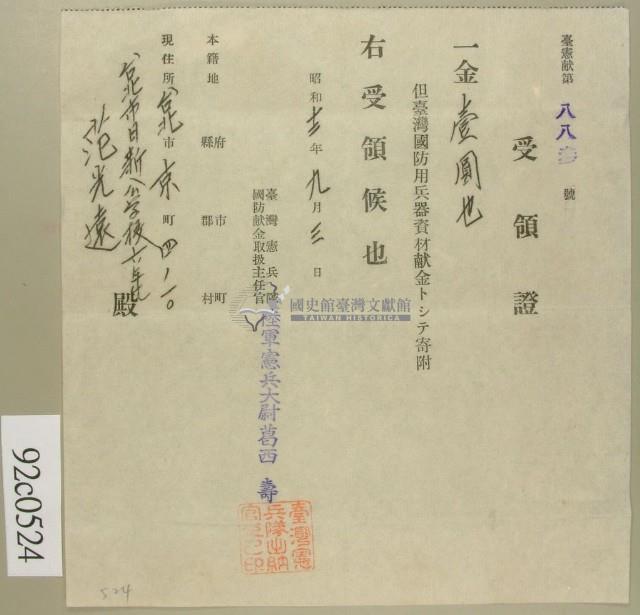 臺憲献第八八三號
受領證
一金壹圓也
但臺灣國防用兵器資材献金トシテ寄附
右受領候也
昭和十三年九月三日
臺灣憲兵隊
國防献金取扱主任官
陸軍憲兵大尉葛西 壽
臺灣憲兵隊出納官吏之印
本籍地 府縣 市郡 町村
現住所 台北市京町四ノ一〇
台北市日新小学校六年七
范光遠 殿
國史館臺灣文獻館
TAIWAN HISTORICA
92c0524
524